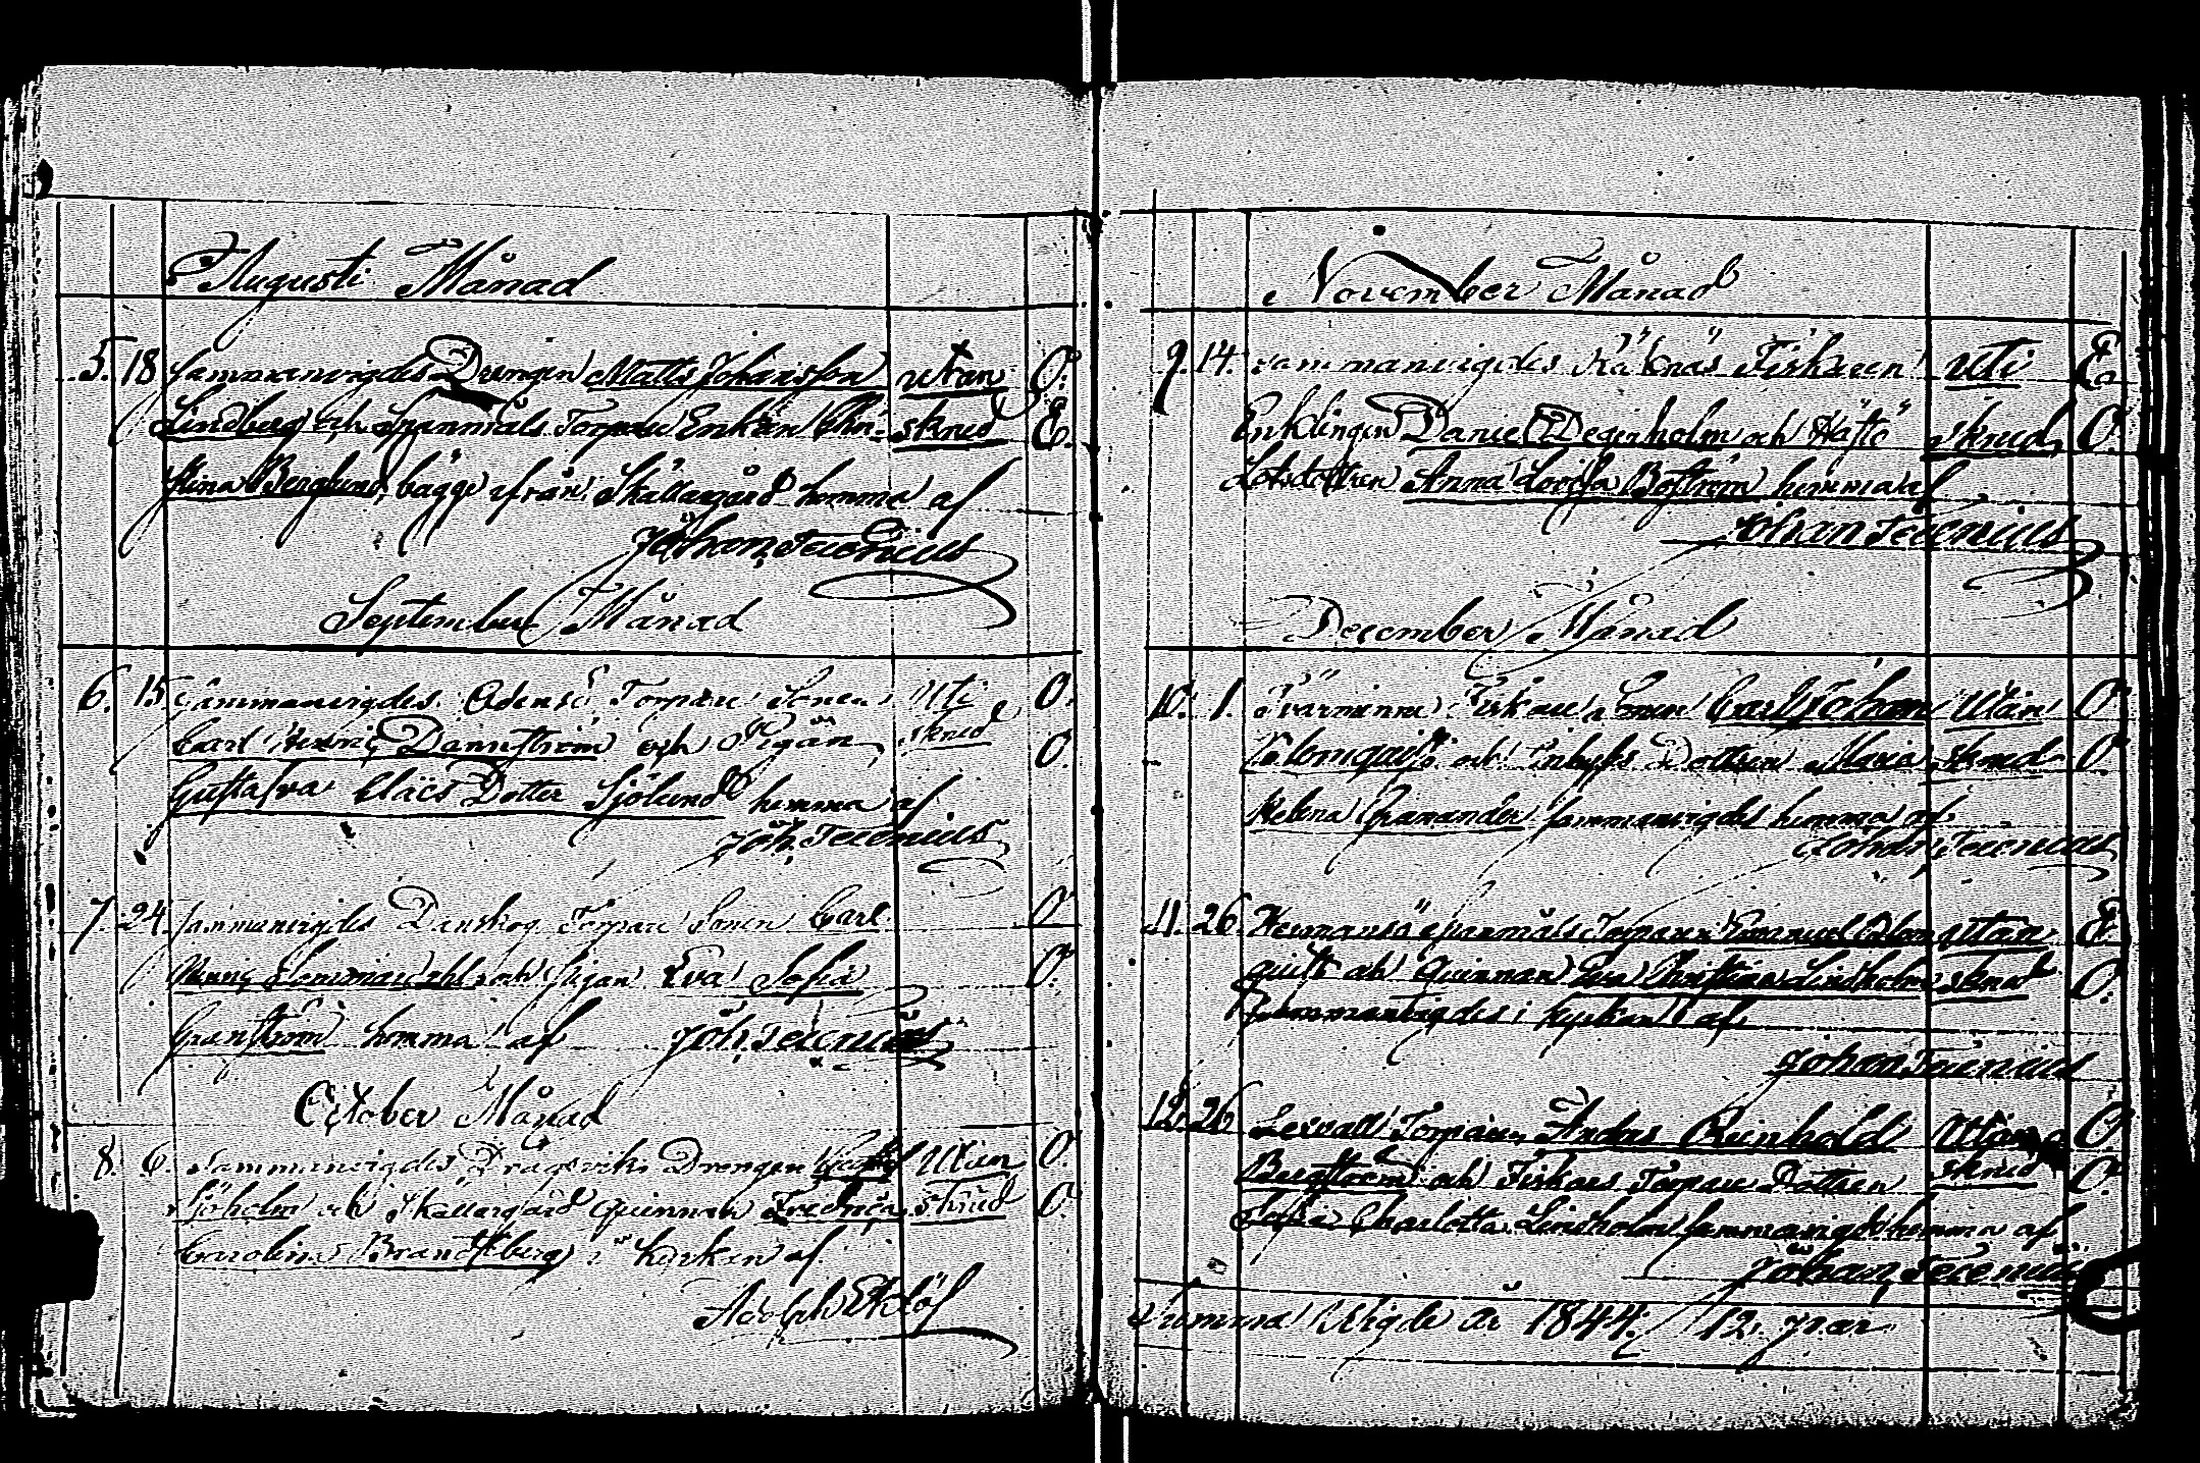 Augusti Månad
5. 18 Sammanvigdes Drengen Matts Johansson utan O.
Lindberg och Spanmåls Torpare Enkan Chri- skrud E.
stina Berglund, bägge ifrån Skallargård hemma af
Johan Tecenius
September Månad
6. 15 Sammanvigdes Torpare Sonen Uti O.
Carl Henric Dannström och Pigan skrud O.
Gustafva Claes Dotter Sjölund hemma af
Joh. Tecenius
7. 24. Sammanvigdes Danskog Torpare Sonen Carl O.
och Pigan Eva Sofia O.
Granström hemma af Joh. Tecenius
October Månad
8. 6. Sammanvigdes Dragsviks Drengen Gustaf Utan O.
Sjöholm och Skallargård Quinnan Fredrica skrud O.
Carolina Brandtberg i Kyrkan af
Adolph Ekelöf
November Månad
9. 14. Sammanvigdes Fiskaren Uti E.
Enklingen Daniel Degerholm och Hästö skrud O.
Lotsdottren Anna Lovisa Boström hemma af
Johan Tecenius
December Månad
10. 1. Tvärminne Fiskare Sonen Carl Johan Utan O.
Blomqvist och Inhyses Dottren Maria skrud O.
Helena Granander sammanvigdes hemma af
Johan Tecenius
11. 26. Hermansö Spanmåls Torparen Emanuel Blom utan E.
quist och Quinnan Eva Christina Lindholm skrud O.
Sammanvigdes i kyrkan af
Johan Tecenius
12. 26 Torparen Anders Reinhold Utan O.
Bergström och Fiskars Torpare Dottren skrud O.
Sofia Charlotta Lindholm sammanvigde hemma af
Johan Tecenius
Summa Vigde år 1844. 12. par